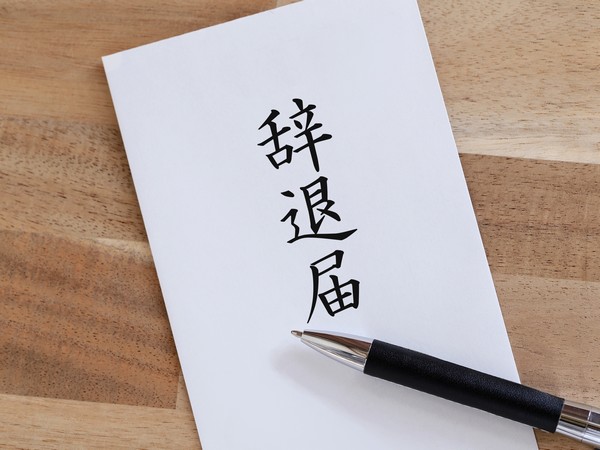 辞退届